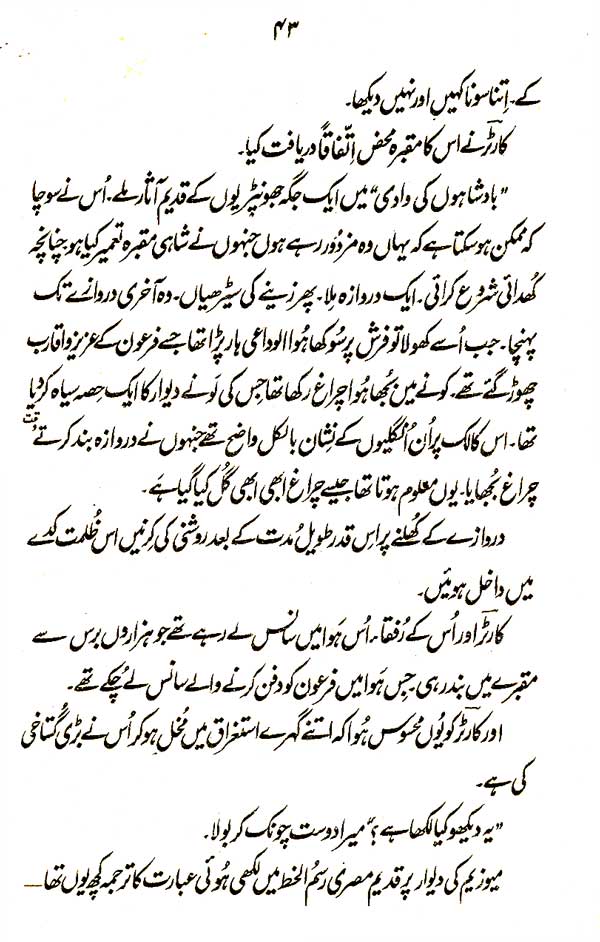 ۴۳
کے۔ اِتنا سونا کہیں اور نہیں دیکھا۔
کارٹر نے اس کا مقبرہ محض اِتّفاقاً دریافت کیا۔
”بادشاہوں کی وادی“ میں ایک جگہ جھونپڑیوں کے قدیم آثار ملے۔ اُس نے سوچا
کہ ممکن ہو سکتا ہے کہ یہاں وہ مزدُور رہے ہوں جنہوں نے شاہی مقبرہ تعمیر کیا ہو چنانچہ
کُھدائی شروع کرائی۔ ایک دروازہ مِلا۔ پھر زینے کی سیڑھیاں۔ وہ آخری دروازے تک
پہنچا۔ جب اُسے کھولا تو فرش پر سُوکھا ہُوا الوداعی ہار پڑا تھا جسے فرعون کے عزیز و اقارب
چھوڑ گئے تھے۔ کونے میں بُجھا ہُوا چراغ رکھا تھا جِس کی لَو نے دیوار کا ایک حِصہ سیاہ کر دیا
تھا۔ اس کالک پر اُن اُنگلیوں کے نِشان بالکل واضح تھے جنہوں نے دروازہ بند کرتے وقت
چراغ بُجھایا۔ یوں معلوم ہوتا تھا جیسے چراغ ابھی ابھی گُل کیا گیا ہے۔
دروازے کے کُھلنے پر اِس قدر طویل مُدت کے بعد روشنی کی کِرنیں اس ظُلمت کدے
میں داخل ہوئیں۔
کارٹر اور اُس کے رُفقاء اُس ہَوا میں سانس لے رہے تھے جو ہزاروں برس سے
مقبرے میں بند رہی۔ جِس ہَوا میں فرعون کو دفن کرنے والے سانس لے چُکے تھے۔
اور کارٹر کو یُوں محسوس ہُوا کہ اتنے گہرے استغراق میں مُخل ہو کر اُس نے بڑی گُستاخی
کی ہے۔
”یہ دیکھو کیا لکھا ہے؟“ میرا دوست چونک کر بولا۔
میوزیم کی دیوار پر قدیم مصری رسم الخط میں لکھی ہُوئی عبارت کا ترجمہ کچھ یوں تھا—